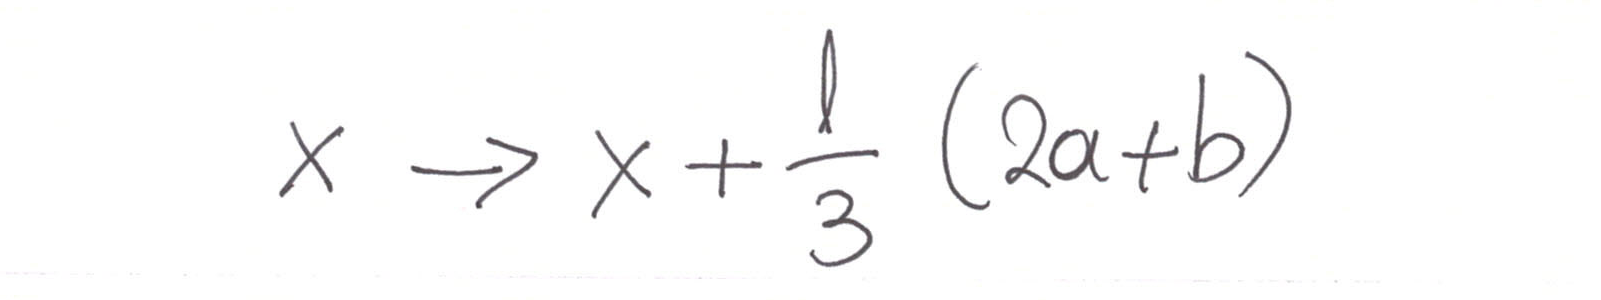 x → x + \frac{l}{3} (2a+b)